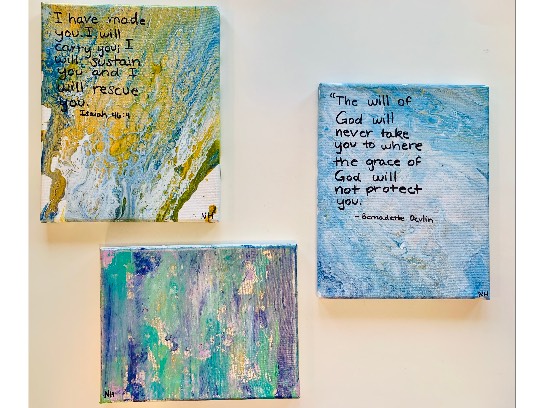 I have made
you, I will
carry you; I
will sustain
you and I
will rescue
you.
Isaiah 46:4
NH
"The will of
God will
never take
you to where
the grace of
God will
not protect
you.
- Bernadette Devlin
NH
NH